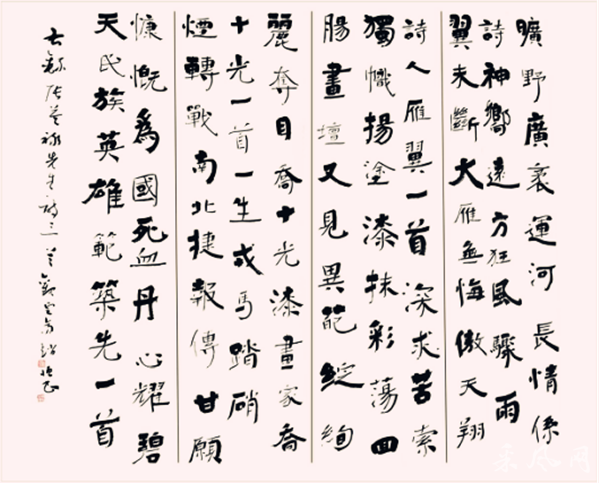 曠野廣袤運河長情係
詩神嚮遠方狂風驟雨
翼未斷大雁無悔傲天翔
詩人雁翼一首深求苦索
獨幟揚塗漆抹彩蕩回
腸畫壇又見異葩綻絢
麗奪目喬十光漆畫家喬
十光一首一生戎馬踏硝
煙轉戰南北捷報傳甘願
慷慨爲國死血丹心耀碧
天民族英雄範築先一首
先生詩三
采风网